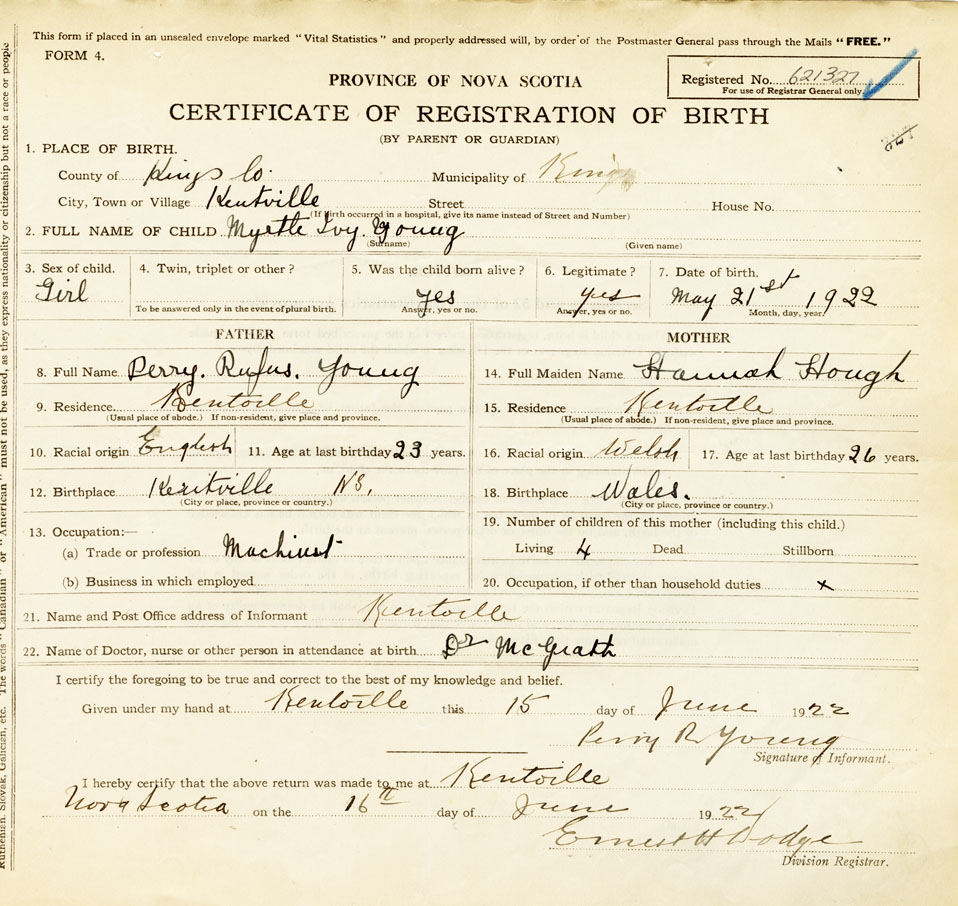 This form if placed in an unsealed envelope marked "Vital Statistics" and properly addressed will, by order of the Postmaster General pass through the Mails "FREE."
FORM 4.
PROVINCE OF NOVA SCOTIA
Registered No. 621327
For use of Registrar General only.
CERTIFICATE OF REGISTRATION OF BIRTH
(BY PARENT OR GUARDIAN)
1. PLACE OF BIRTH.
County of Kings Co. Municipality of Kings
City, Town or Village Kentville Street House No.
(If birth occurred in a hospital, give its name instead of Street and Number)
2. FULL NAME OF CHILD Myrtle Ivy. Young
(Surname) (Given name)
3. Sex of child. 4. Twin, triplet or other? 5. Was the child born alive? 6. Legitimate? 7. Date of birth.
Girl yes yes May 21st 1922
To be answered only in the event of plural birth. Answer, yes or no. Answer, yes or no. Month, day, year.
FATHER MOTHER
8. Full Name Perry. Rufus. Young 14. Full Maiden Name Hannah Hough
9. Residence. Kentville 15. Residence Kentville
(Usual place of abode.) If non-resident, give place and province. (Usual place of abode.) If non-resident, give place and province.
10. Racial origin English 11. Age at last birthday 23 years. 16. Racial origin Welsh 17. Age at last birthday 26 years.
12. Birthplace Kentville N.S. 18. Birthplace Wales.
(City or place, province or country.) (City or place, province or country.)
13. Occupation:— 19. Number of children of this mother (including this child.)
(a) Trade or profession Machinist Living 4 Dead Stillborn
(b) Business in which employed 20. Occupation, if other than household duties x
21. Name and Post Office address of Informant Kentville
22. Name of Doctor, nurse or other person in attendance at birth Dr McGrath
I certify the foregoing to be true and correct to the best of my knowledge and belief.
Given under my hand at Kentville this 15 day of June 1922
Perry R Young
Signature of Informant.
I hereby certify that the above return was made to me at Kentville
Nova Scotia on the 16th day of June 1922
Ernest H Dodge
Division Registrar.
Ruthenian, Slovak, Galician, etc. The words "Canadian" or "American" must not be used, as they express nationality or citizenship but not a race or people